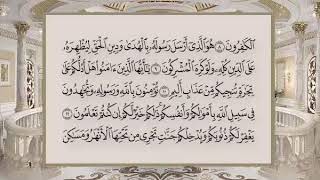 ٱلۡكَٰفِرُونَ ٨ هُوَ ٱلَّذِيٓ أَرۡسَلَ رَسُولَهُۥ بِٱلۡهُدَىٰ وَدِينِ ٱلۡحَقِّ لِيُظۡهِرَهُۥ
عَلَى ٱلدِّينِ كُلِّهِۦ وَلَوۡ كَرِهَ ٱلۡمُشۡرِكُونَ ٩ يَٰٓأَيُّهَا ٱلَّذِينَ ءَامَنُواْ هَلۡ أَدُلُّكُمۡ عَلَىٰ
تِجَٰرَةٖ تُنجِيكُم مِّنۡ عَذَابٍ أَلِيمٖ ١٠ تُؤۡمِنُونَ بِٱللَّهِ وَرَسُولِهِۦ وَتُجَٰهِدُونَ
فِي سَبِيلِ ٱللَّهِ بِأَمۡوَٰلِكُمۡ وَأَنفُسِكُمۡۚ ذَٰلِكُمۡ خَيۡرٞ لَّكُمۡ إِن كُنتُمۡ تَعۡلَمُونَ ١١
يَغۡفِرۡ لَكُمۡ ذُنُوبَكُمۡ وَيُدۡخِلۡكُمۡ جَنَّٰتٖ تَجۡرِي مِن تَحۡتِهَا ٱلۡأَنۡهَٰرُ وَمَسَٰكِنَ